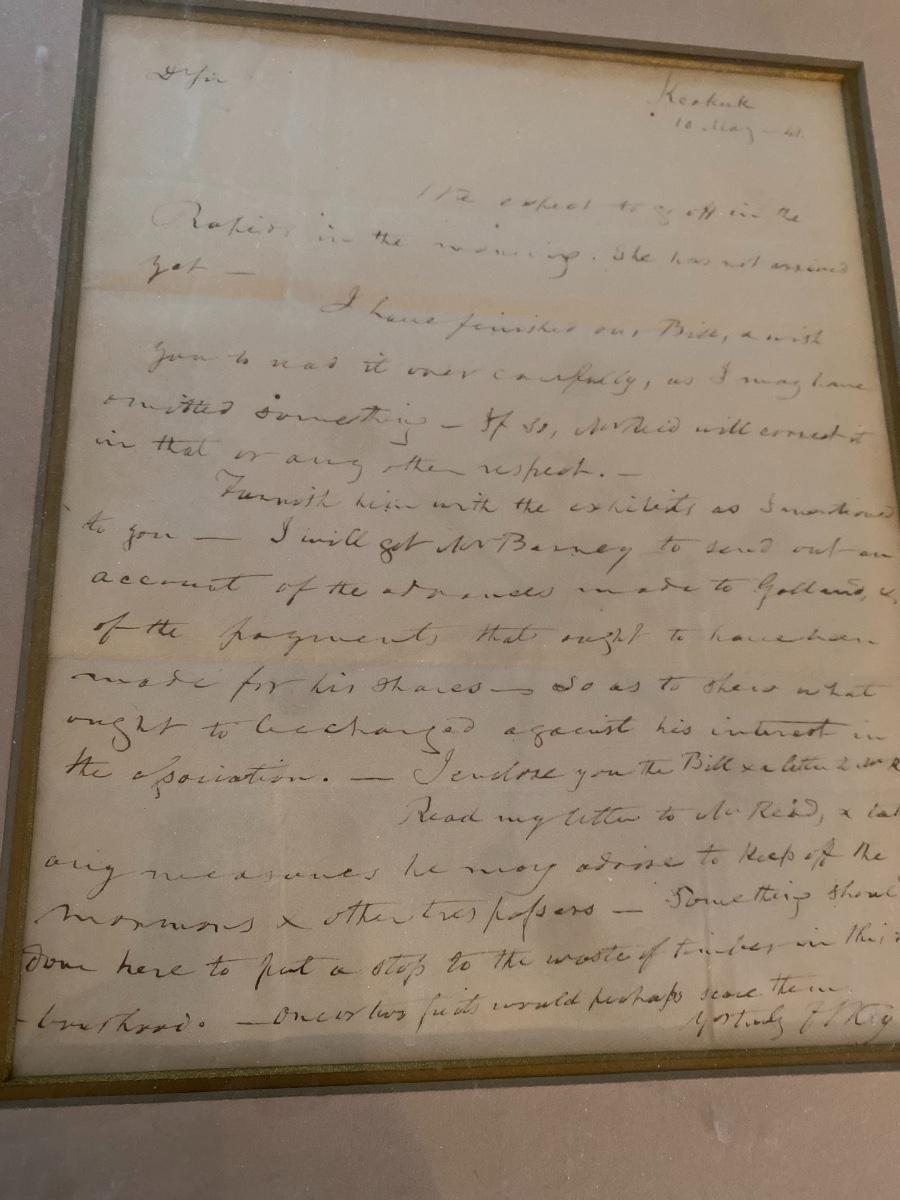 Dr Sir
Keokuk
10 May - 41.
We expect to go off in the
Rapids in the morning. She has not arrived
yet —
I have finished our Bill, & wish
you to read it over carefully, as I may have
omitted something — If so, Mr Reid will correct it
in that or any other respect. —
Furnish him with the exhibits as I mentioned
to you — I will get Mr Barney to send out an
account of the advances made to Galland, &
of the payments that ought to have been
made for his shares — so as to shew what
ought to be charged against his interest in
the association. — I enclose you the Bill & a letter to Mr R
Read my letter to Mr Reid, &
any measures he may advise to keep off the
mormons & other trespassers — Something shoul
done here to put a stop to the waste of timber in this
-bourhood. — One or two suits would perhaps scare them.
Yrs truly F S Key